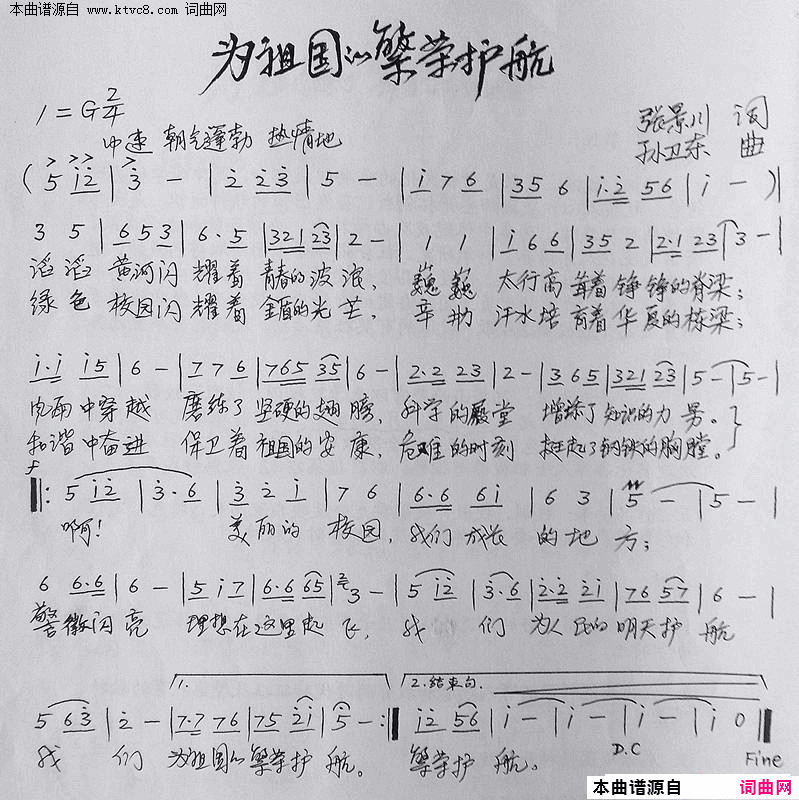 本曲谱源自 www.ktvc8.com 词曲网
为祖国的繁荣护航
1=G 2/4
张景川 词
中速 朝气蓬勃 热情地
孙卫东 曲
( 5 i2 | 3 - | 2 23 | 5 - | i 7 6 | 35 6 | i·2 56 | i - ) |
3 5 | 6 5 3 | 6· 5 | 321 23 | 2 - | 1 1 | i 6 6 | 35 2 | 2·1 23 | 3 - |
滔滔 黄河闪 耀着 青春的波浪, 巍巍 太行高 耸着 铮铮的脊梁;
绿色 校园闪 耀着 金盾的光芒, 辛勤 汗水培 育着 华夏的栋梁;
i·i i5 | 6 - | 7 7 6 | 765 35 | 6 - | 2·2 23 | 2 - | 3 6 5 | 321 23 | 5 - | 5 - |
风雨中穿越 磨练了 坚硬的翅膀, 科学的殿堂 增添了知识的力量。
和谐中奋进 保卫着 祖国的安康, 危难的时刻 挺起了钢铁的胸膛。
f
‖: 5 i2 | 3· 6 | 3 2 i | 7 6 | 6·6 6i | 6 3 | 5 - | 5 - |
啊! 美丽的 校园, 我们 成长 的地 方;
6 6·6 | 6 - | 5 i 7 | 6·6 65 | 2 3 - | 5 i2 | 3· 6 | 2·2 2i | 76 57 | 6 - |
警徽闪亮 理想在这里起 飞, 我 们 为人民的 明天护 航
1. 2.结束句.
5 63 | 2 - | 7·7 76 | 75 2i | 5 - :‖ i2 56 | i - | i - | i - | i 0 ‖
我 们 为祖国的 繁荣护 航。 繁荣护 航。
D.C Fine
本曲谱源自 词曲网